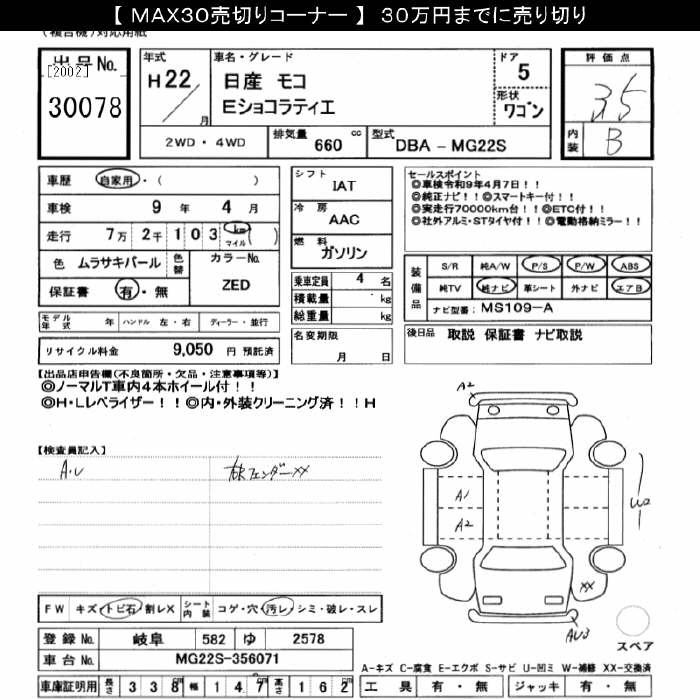 【 MAX30売切りコーナー 】 30万円までに売り切り
(複合機)対応用紙
出品No.
[2002]
30078
年式
H22/月
車名・グレード
日産 モコ
Eショコラティエ
ドア
5
形状
ワゴン
評価点
3.5
内装
B
2WD・4WD
排気量
660 cc
型式
DBA - MG22S
車歴 自家用・( )
車検 9 年 4 月
走行 7万 2千 1 0 3 km マイル ( )
色 ムラサキパール 色替
カラーNo.
ZED
保証書 有・無
シフト
IAT
冷房
AAC
燃料
ガソリン
乗車定員 4 名
積載量 kg
総重量 kg
セールスポイント
◎車検令和9年4月7日!!
◎純正ナビ!!◎スマートキー付!!
◎実走行70000km台!!◎ETC付!!
◎社外アルミ・STタイヤ付!!◎電動格納ミラー!!
装備品
S/R 純A/W P/S P/W ABS
純TV 純ナビ 革シート 外ナビ エアB
ナビ型番: MS109-A
モデル年式 年 ハンドル 左・右 ディーラー・並行
名変期限
月 日
後日品 取説 保証書 ナビ取説
リサイクル料金 9,050 円 預託済
【出品店申告欄(不良箇所・欠品・注意事項等)】
◎ノーマルT車内4本ホイール付!!
◎H・Lレベライザー!!◎内・外装クリーニング済!!H
【検査員記入】
A・U
フェンダーXX
A2
A1
A2
U2
XX
AU3
スペア
FW キズ・トビ石・割レX
シート内装 コゲ・穴・汚レ・シミ・破レ・スレ
登録No. 岐阜 582 ゆ 2578
車台No. MG22S-356071
A-キズ C-腐食 E-エクボ S-サビ U-凹ミ W-補修 XX-交換済
車庫証明用 長さ 3 3 8 幅 1 4 7 高さ 1 6 2
工具 有・無 ジャッキ 有・無